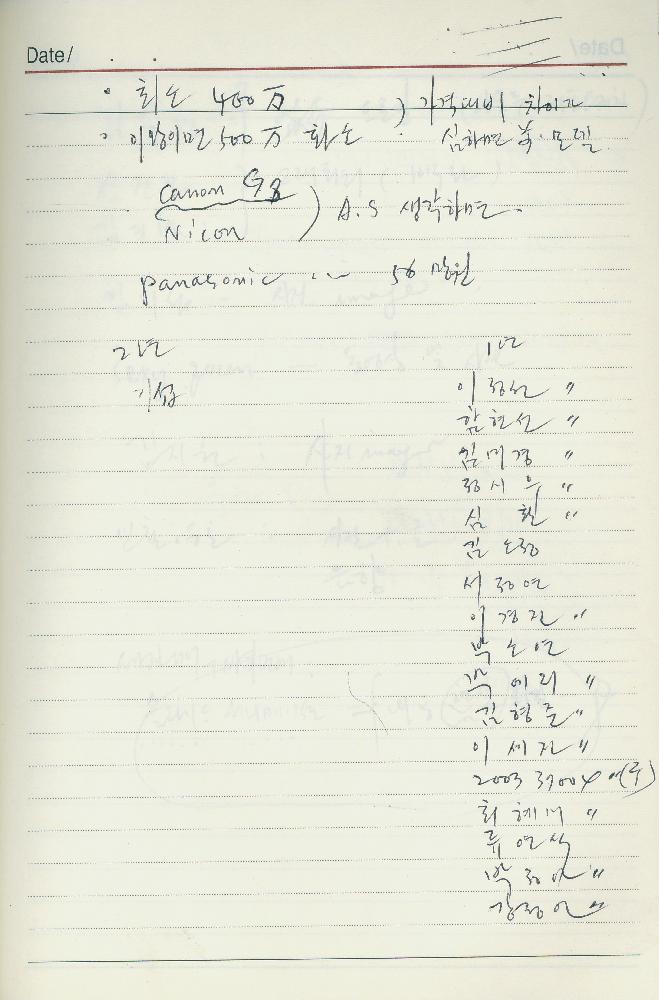 Date/
· 최소 400万
· 이왕이면 500万 화소
) 가격대비 차이가
심하면 옛·모델.
Canon G3
Nicon
) A.S 생각하면.
panasonic ... 56 만원
2년
1년
기섭
이정선 "
함현선 "
임미경 "
정시우 "
심 훤 "
김소정
서정연
이경진 "
박소연
박에리 "
김형준 "
이세진 "
2003 37004 "(주)
최혜미 "
류연식
박정아 "
강정연 "